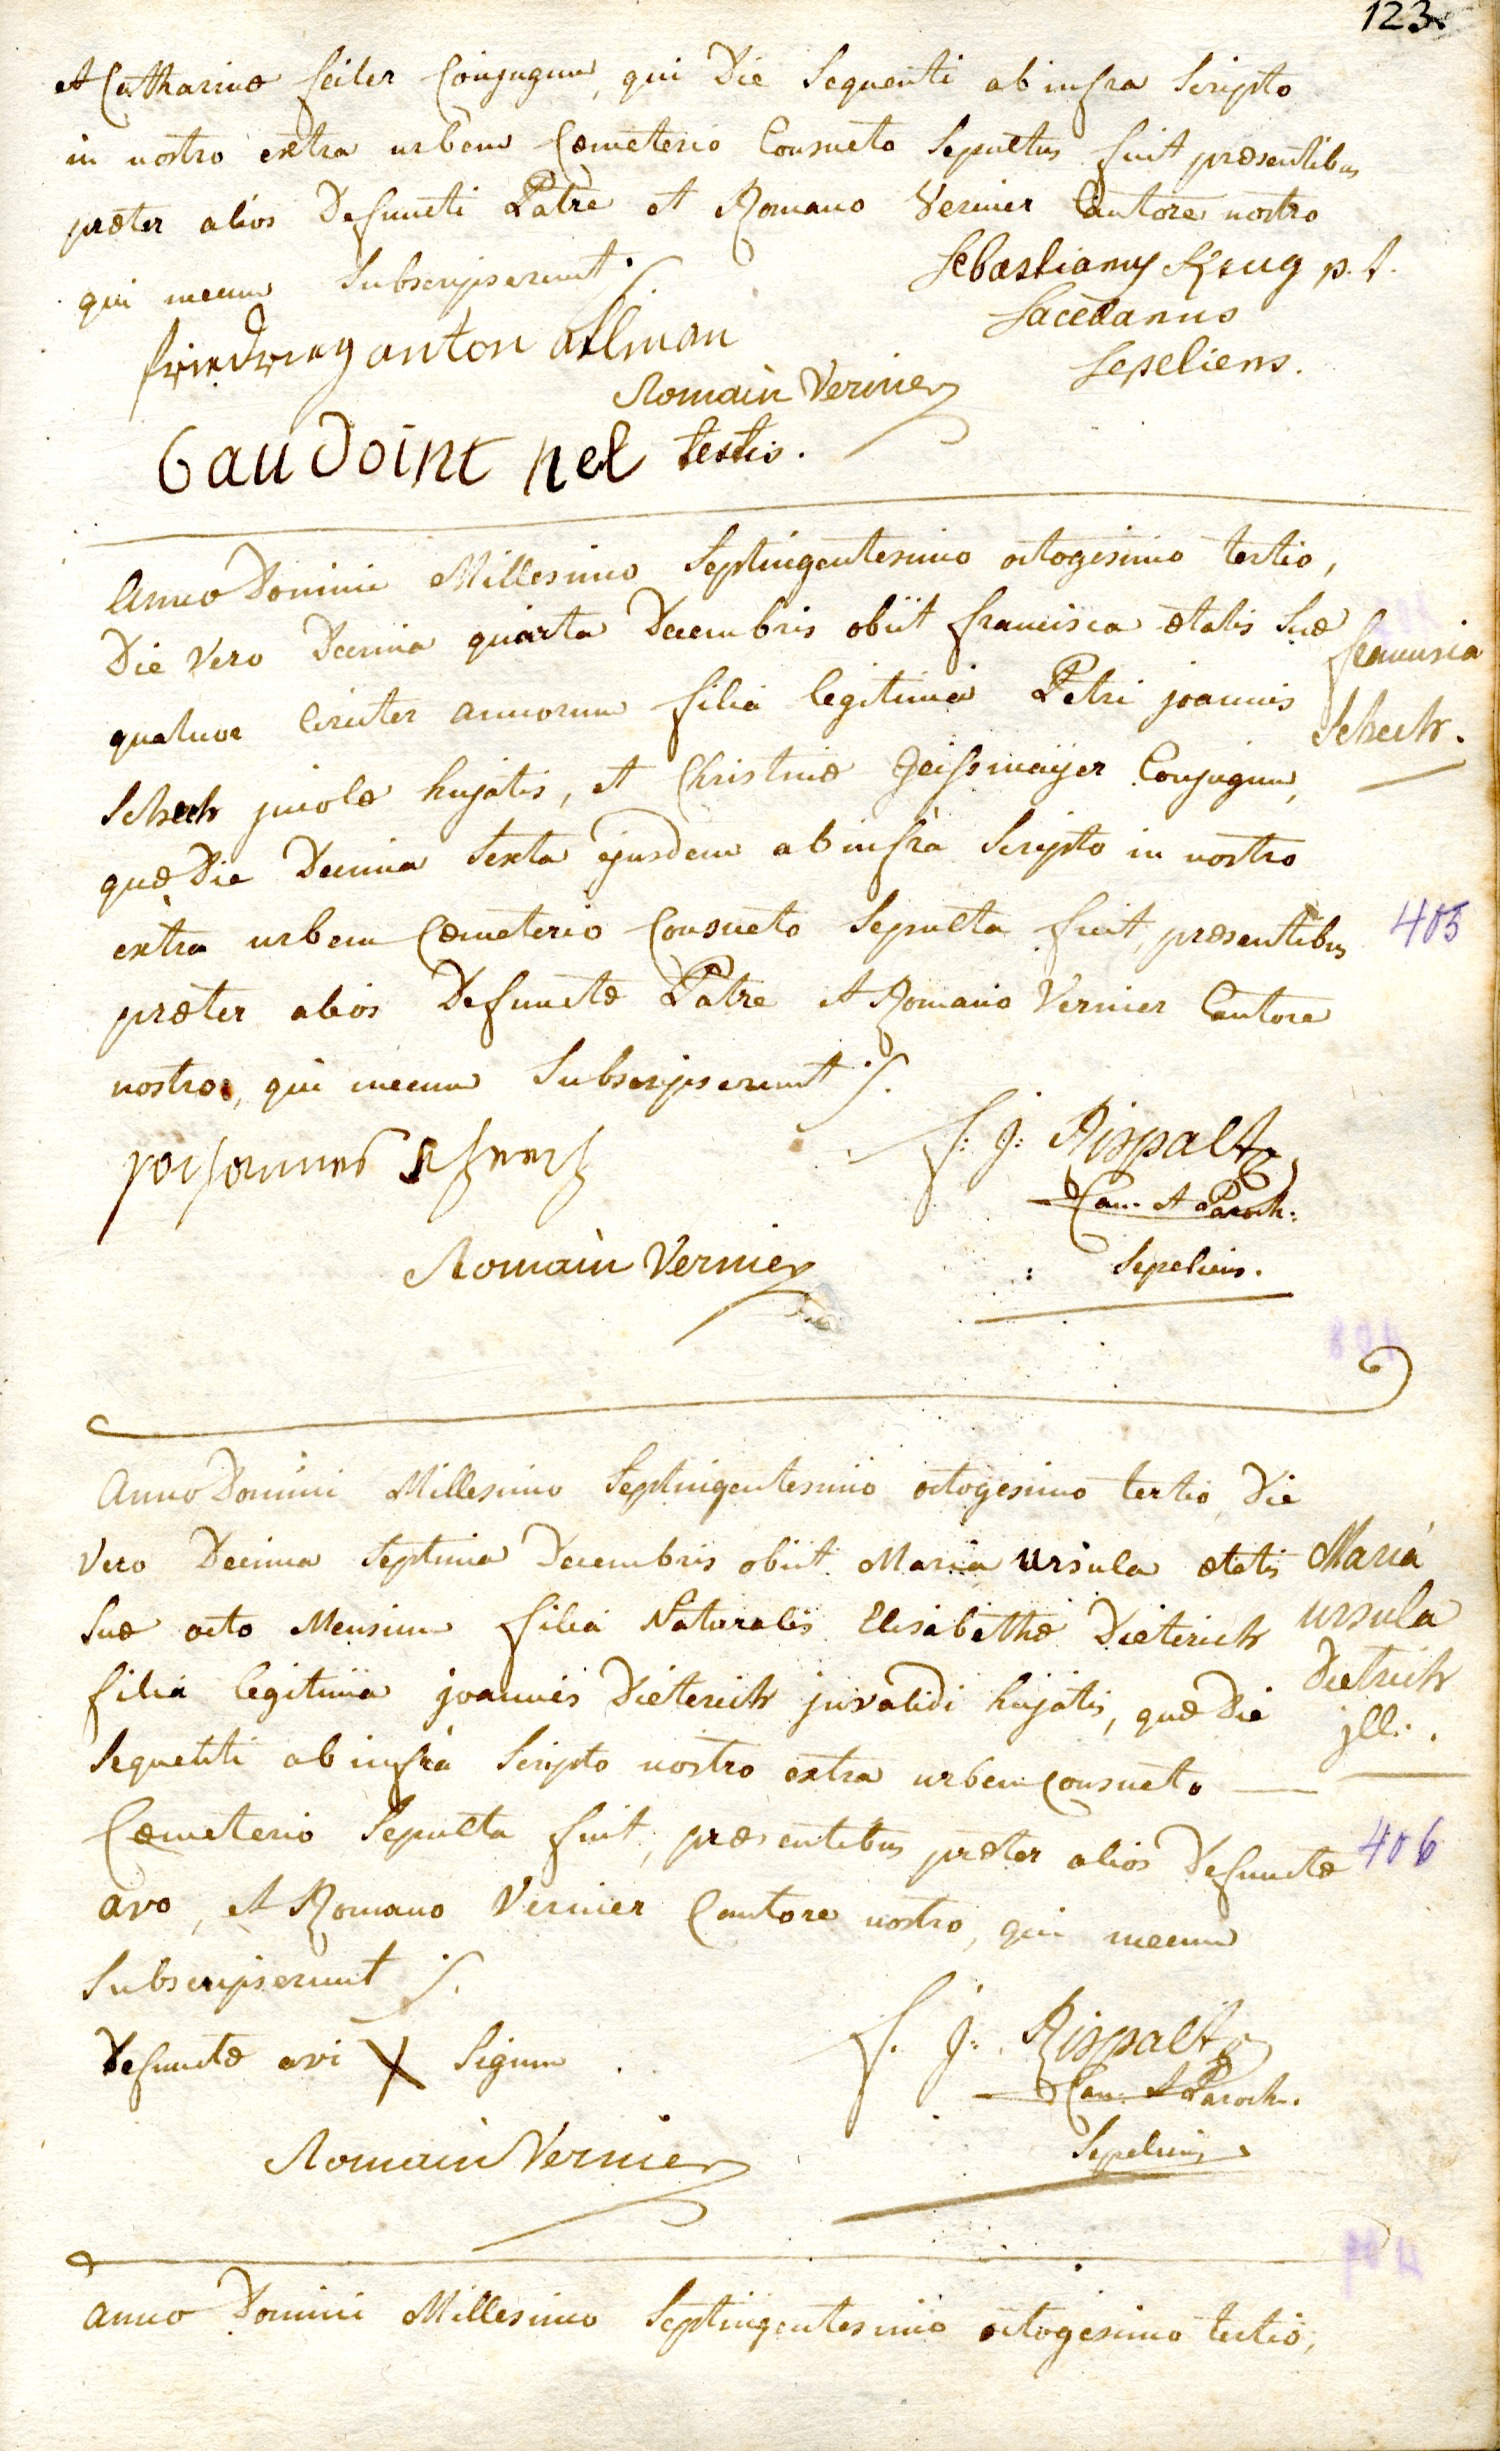 123
et Catharinæ Seiler Conjugum, qui Die Sequenti ab infra Scripto
in nostro extra urbem Cœmeterio Consueto Sepultus fuit præsentibus
præter alios Defuncti Patre et Romano Vernier Cantore nostro
qui mecum Subscripserunt ./.
Sebastianus Krug p. t.
Sacellanus
Sepeliens.
anton allman
Romain Vernier
testis.
Anno Domini Millesimo Septingentesimo octogesimo tertio,
Die Vero Decima quarta Decembris obiit francisca ætatis Suæ
francisca
quatuor Circiter annorum filia legitima Petri joannis
Schech.
Schech jncolæ hujatis, et Christinæ Geissmaÿer Conjugum,
quæ Die Decima Sexta ejusdem ab infrà Scripto in nostro
extra urbem Cœmeterio Consueto Sepulta fuit, præsentibus
405
præter alios Defunctæ Patre et Romano Vernier Cantore
nostro, qui mecum Subscripserunt ./.
f: j: Rispalt
Can. et Paroch:
Sepeliens.
Romain Vernier
Anno Domini Millesimo Septingentesimo octogesimo tertio, Die
Vero Decima Septima Decembris obiit Maria Ursula ætatis
Maria
Suæ octo Mensium filia Naturalis Elisabethæ Dieterich
Ursula
filia legitima joannis Dieterich jnvalidi hujatis, quæ Die
Dietrich
jll..
Sequenti ab infrà Scripto nostro extra urbem Consueto
Cœmeterio Sepulta fuit, præsentibus præter alios Defunctæ
406
avo, et Romano Vernier Cantore nostro, qui mecum
Subscripserunt ./.
Defunctæ avi X Signum
f. j: Rispalt
Can. et Paroch.
Sepeliens
Romain Vernier
anno Domini Millesimo Septingentesimo octogesimo tertio,